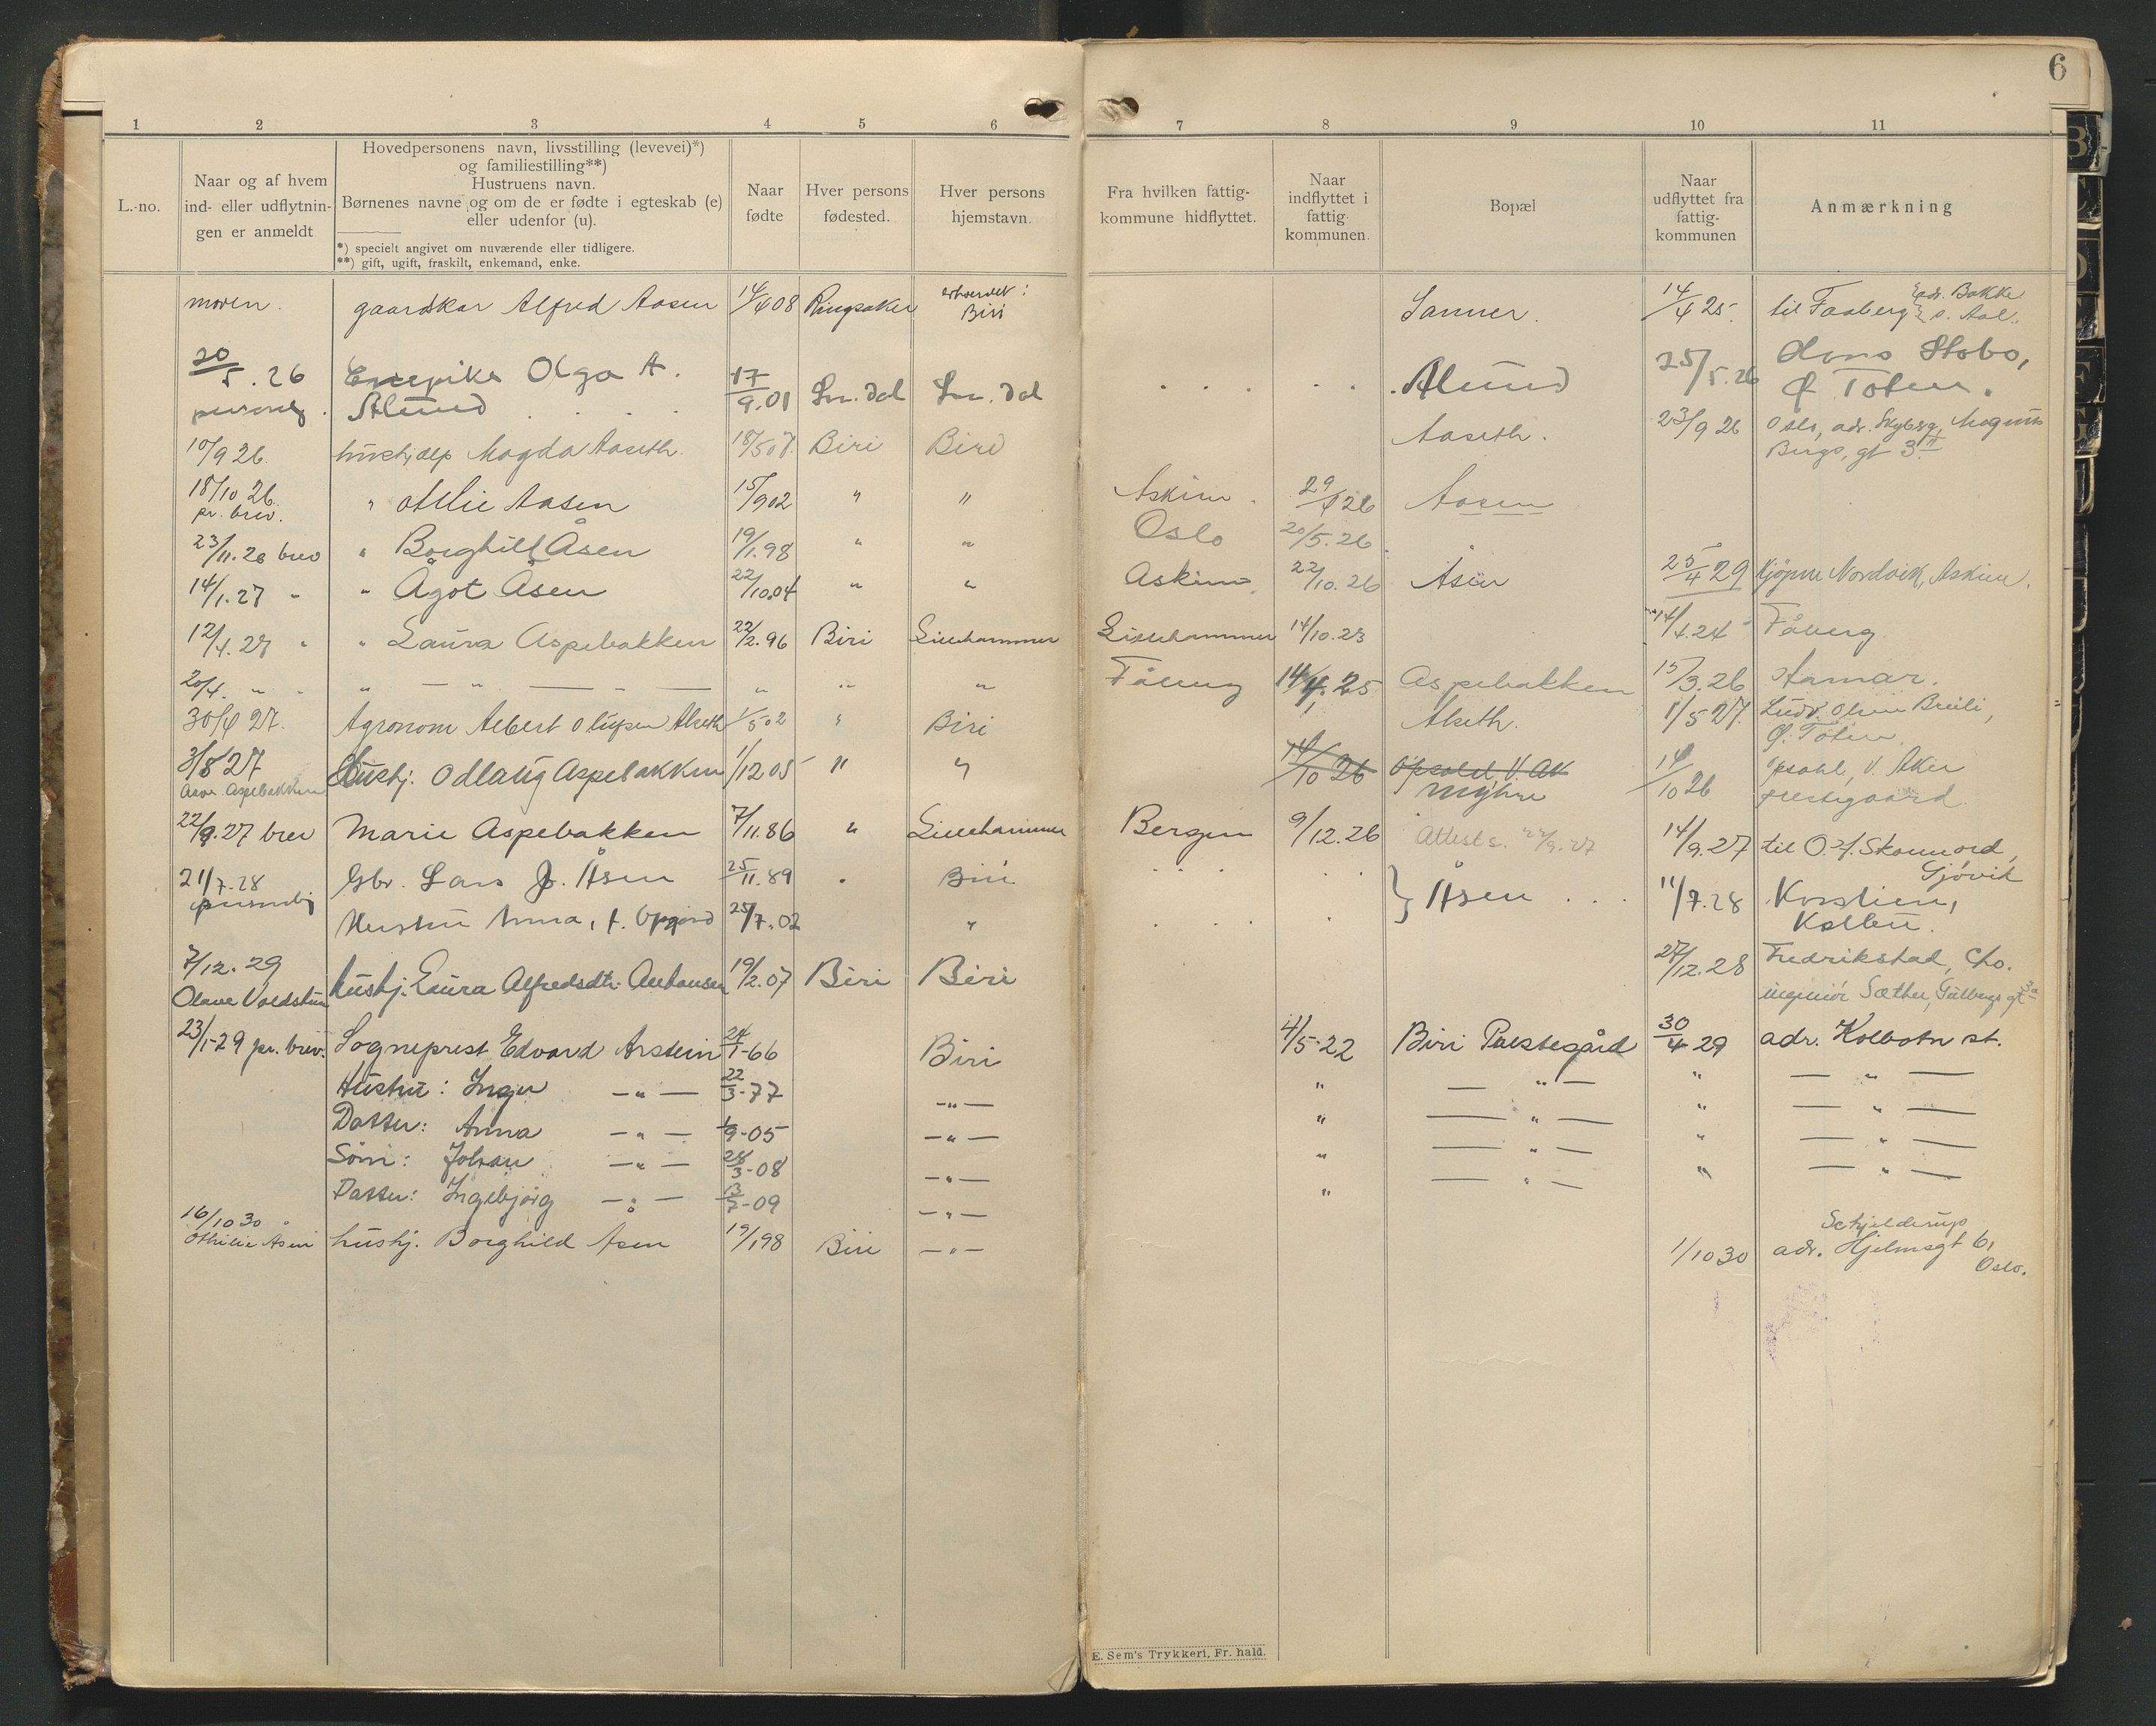 6
1 2 3 4 5 6 7 8 9 10 11
L.-no.
Naar og af hvem
ind- eller udflytnin-
gen er anmeldt
Hovedpersonens navn, livsstilling (levevei)*)
og familiestilling**)
Hustruens navn.
Børnenes navne og om de er fødte i egteskab (e)
eller udenfor (u).
*) specielt angivet om nuværende eller tidligere.
**) gift, ugift, fraskilt, enkemand, enke.
Naar
fødte
Hver persons
fødested.
Hver persons
hjemstavn.
Fra hvilken fattig-
kommune hidflyttet.
Naar
indflyttet i
fattig-
kommunen.
Bopæl
Naar
udflyttet fra
fattig-
kommunen
Anmærkning
moren. gaardskar Alfred Aasen 14/4 08 Ringsaker erhvervet: Biri Sanner. 14/4 25. til Faaberg adr. Bakke
20/5.26 Olga A. 17/9.01 . . . . . Alund 25/5.26
personlig. Alund Ø. Toten.
10/9 26. hushjælp Magda Aaseth. 18/5 07. Biri Biri Aaseth. 23/9 26 Oslo, adr. Magnus
Bergs. gt 3 II
18/10 26. pr. brev. " Otilie Aasen 15/9 02 " " Askim. 29/9 26 Aasen
23/11.26 brev " Borghild Åsen 19/1.98 " " Oslo 20/5.26
14/1.27 " " Ågot Åsen 22/10.04 " " Askim. 22/10.26 Åsen 25/4 29 Nordvik, Askim.
12/4.27 " " Laura Aspebakken 22/2.96 Biri Lillehammer Lillehammer 14/10.23 14/4.24 Fåberg
20/4. " " " — " — " " " Fåberg 14/4.25 Aspebakken 15/3.26 Hamar.
30/4 27. Agronom Albert Olufsen Alseth 1/5 02 " Biri Alseth. 1/5 27. Ludv. Olsen Breili,
Ø. Toten.
3/8 27 Hushj. Odlaug Aspebakken 1/12 05 " " 14/10 26 Opsahl, V. Ak 14/10 26 Opsahl, V. Aker
Aspebakken Myhre prestegaard
22/9.27 brev Marie Aspebakken 7/11.86 " Lillehammer Bergen 9/12.26 Attest s. 22/9.27 14/9.27 til O. J. Skonnord,
Gjøvik
21/7.28 Gbr. Lars J. Åsen 25/11.89 " Biri } Åsen . . . 11/7.28
personlig Kolbu.
Hustru Anna, f. 25/7.02 "
7/12.29 hushj. Laura Alfredsdtr. 19/2.07 Biri Biri 27/12.28 Fredrikstad, C/o.
Olave Voldstuen ingeniør Sæther, gt 3a
23/1-29 pr. brev. Sogneprest Edvard Arstein 24/1-66 Biri 4/5-22 Biri Prestegård 30/4 29 adr. Kolbotn st.
Hustru: Inger — " — 22/3-77 — " — " — " — " — " —
Datter: Anna — " — 1/9-05 — " — " — " — " — " —
Sønn: Johan — " — 28/3-08 — " — " — " — " — " —
Datter: Ingebjørg — " — 13/7-09 — " — " — " — " — " —
16/10 30
Othilie Åsen hushj. Borghild Åsen 19/1 98 Biri — " — 1/10 30 Schjelderup
adr. Hjelmsgt 6,
Oslo.
E. Sem's Trykkeri, Fr. hald.